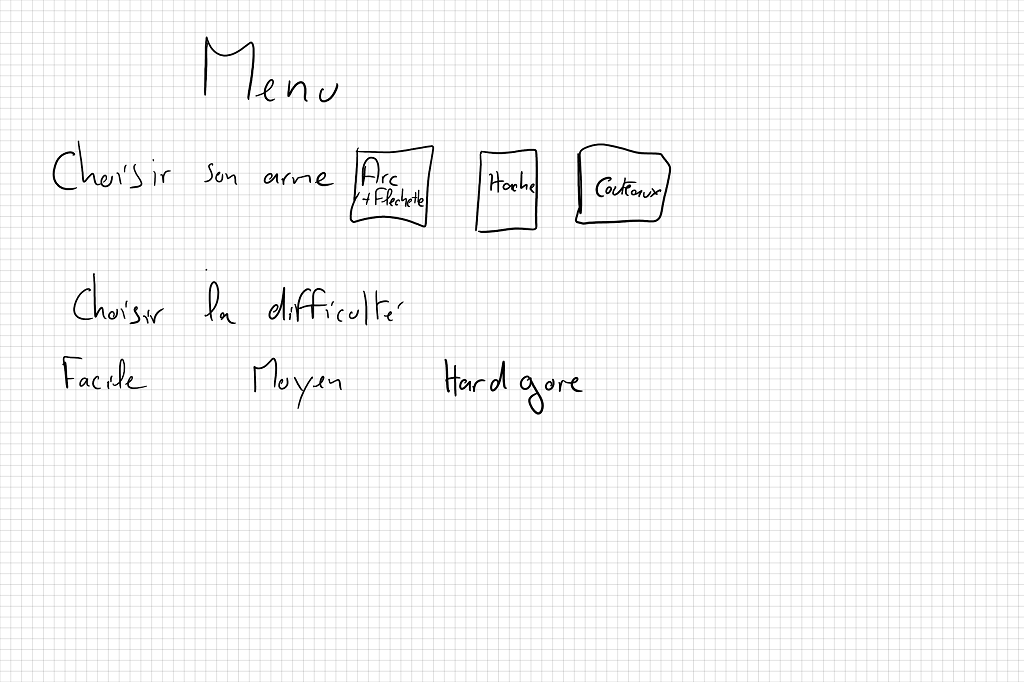 Menu
Choisir son arme Arc + Flechette Hache Couteaux
Choisir la difficulté
Facile Moyen Hard gore